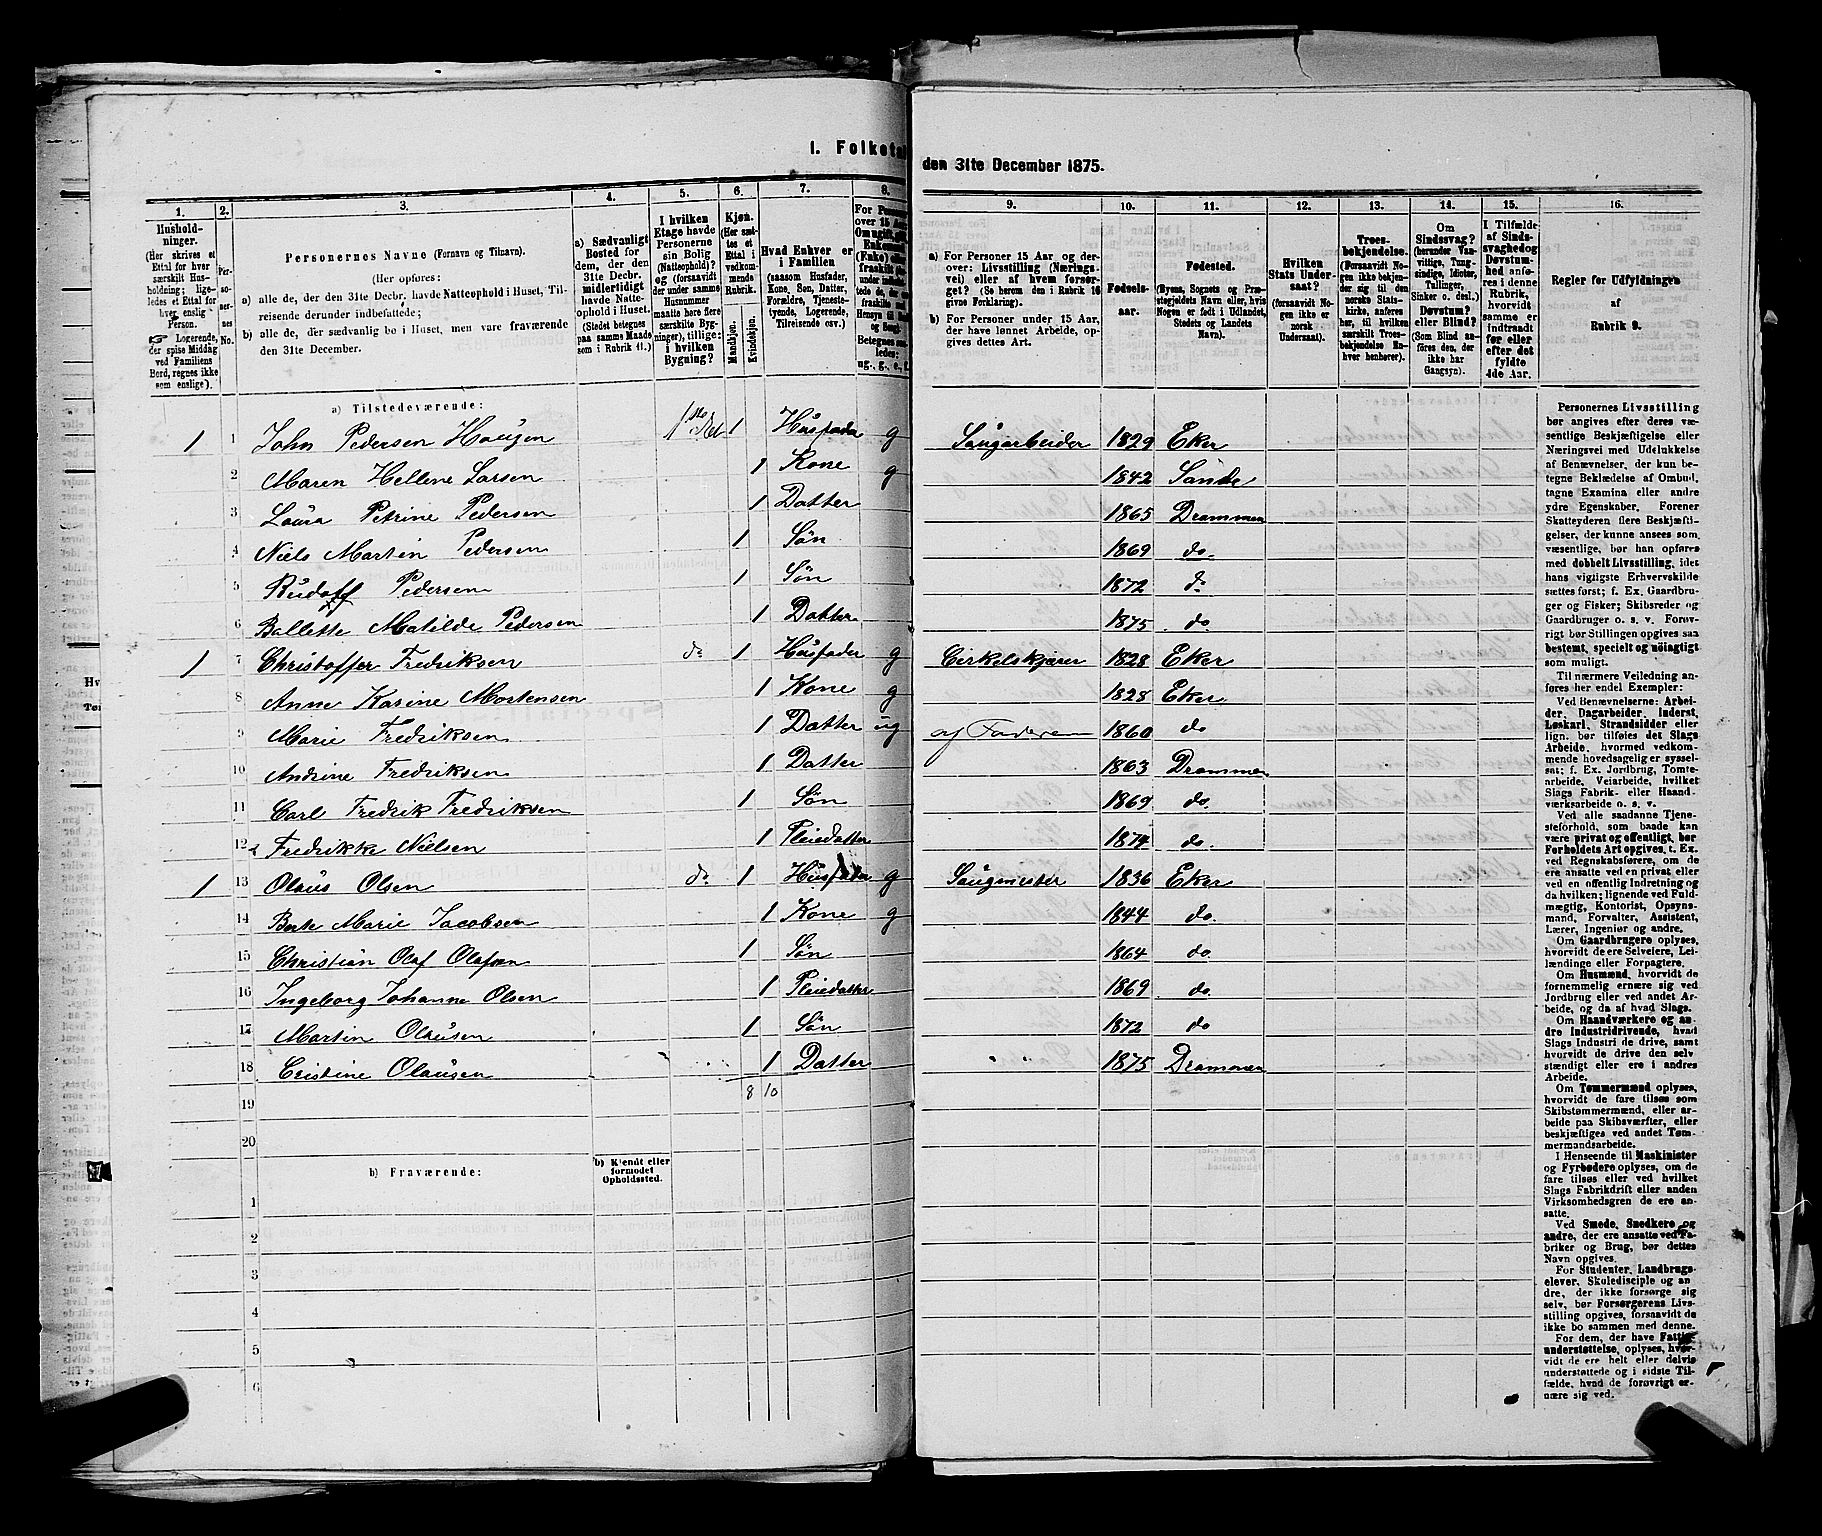 I. Folketal
den 31te December 1875.
1. 2. 3. 4. 5. 6. 7. 8.
Husholdninger.
(Her skrives et Ettal for hver særskilt Husholdning; ligeledes et Ettal for hver enslig Person.
☞ Logerende, der spise Middag ved Familiens Bord, regnes ikke som enslige).
Personernes No.
Personernes Navne (Fornavn og Tilnavn).
(Her opføres:
a) alle de, der den 31te Decbr. havde Natteophold i Huset, Tilreisende derunder indbefattede;
b) alle de, der sædvanlig bo i Huset, men vare fraværende den 31te December.
a) Sædvanligt Bosted for dem, der den 31te Decbr. midlertidigt havde Natteophold i Huset.
(Stedet betegnes paa samme Maade som i Rubrik 11.)
I hvilken Etage havde Personerne sin Bolig (Natteophold)? og (forsaavidt der under samme Husnummer maatte høre flere særskilte Bygninger), tillige: i hvilken Bygning?
Kjøn.
(Her sættes et Ettal i vedkommende Rubrik.
Mandkjøn.
Kvindekjøn.
Hvad Enhver er i Familien
(saasom Husfader, Kone, Søn, Datter, Forældre, Tjenestetyende, Logerende, Tilreisende osv.)
9. 10. 11. 12. 13. 14. 15. 16.
a) For Personer 15 Aar og derover: Livsstilling (Næringsvei) eller af hvem forsørget? (Se herom den i Rubrik 16 givne Forklaring).
b) For Personer under 15 Aar, der have lønnet Arbeide, opgives dettes Art.
Fødselsaar.
Fødested.
(Byens, Sognets og Præstegjeldets Navn eller, hvis Nogen er født i Udlandet, Stedets og Landets Navn).
Hvilken Stats Undersaat?
(forsaavidt Nogen ikke er norsk Undersaat).
Troesbekjendelse.
(Forsaavidt Nogen ikke bekjender sig til den norske Statskirke, anføres her, til hvilken særskilt Troesbekjendelse Enhver henhører).
Om Sindssvag? (herunder Vanvittige, Tungsindige, Idioter, Tullinger, Sinker o. desl.) Døvstum? eller Blind? (Som Blind anføres den, der ikke har Gangsyn).
I Tilfælde af Sindssvaghed og Døvstumhed anføres i denne Rubrik, hvorvidt samme er indtraadt før eller efter det fyldte 4de Aar.
Regler for Udfyldningen af Rubrik 9.
a) Tilstedeværende:
1 1 John Pedersen Haugen 1 Husfader g Saugarbeider 1829 Eker
2 Maren Hellene Larsen 1 Kone g 1842 Sande
3 Laura Petrine Pedersen 1 Datter 1865 Drammen
4 Niels Martin Pedersen 1 Søn 1869 do.
5 Pedersen 1 Søn 1872 do
6 Ballette Matilde Pedersen 1 Datter 1875 do.
1 7 Christoffer Fredriksen do 1 Husfader g Cirkelskjærer 1828 Eker
8 Anne Karine Mortensen 1 Kone g 1828 Eker
9 Marie Fredriksen 1 Datter ug af Faderen 1860 do
10 Andrine Fredriksen 1 Datter 1863 Drammen
11 Carl Fredrik Fredriksen 1 Søn 1869 do.
12 Fredrikke Nielsen 1 Pleiedatter 1874 do.
1 13 Olaus Olsen do. 1 Husfader g Saugmester 1836 Eker
14 Berte Marie Jacobsen 1 Kone g 1844 do.
15 Christian Olaf Olafsen 1 Søn 1864 do.
16 Ingeborg Johanne Olsen 1 Pleiedatter 1869 do.
17 Martin Olausen 1 Søn 1872 do
18 Cristine Olausen 1 Datter 1875 Drammen
19 8 10
20
b) Fraværende:
b) Kjendt eller formodet Opholdssted.
1
2
3
4
5
6
Personernes Livsstilling bør angives efter deres væsentlige Beskjæftigelse eller Næringsvei med Udelukkelse af Benævnelser, der kun betegne Beklædelse af Ombud, tagne Examina eller andre ydre Egenskaber. Forener Skatteyderen flere Beskjæftigelser, der kunne ansees som væsentlige, bør han opføres med dobbelt Livsstilling, idet hans vigtigste Erhvervskilde sættes først; f. Ex. Gaardbruger og Fisker; Skibsreder og Gaardbruger o. s. v. Forøvrigt bør Stillingen opgives saa bestemt, specielt og nøiagtigt som muligt.
Til nærmere Veiledning anføres her endel Exempler:
Ved Benævnelserne: Arbeider, Dagarbeider, Inderst, Løskarl, Strandsidder eller lign. bør tilføies det Slags Arbeide, hvormed vedkommende hovedsagelig er sysselsat; f. Ex. Jordbrug, Tomtearbeide, Veiarbeide, hvilket Slags Fabrik- eller Haandværksarbeide o. s. v.
Ved alle saadanne Tjenesteforhold, som baade kan være privat og offentligt, bør Forholdets Art opgives, t. Ex. ved Regnskabsførere, om de ere ansatte ved en privat eller ved en offentlig Indretning og da hvilken; lignende ved Fuldmægtig, Kontorist, Opsynsmand, Forvalter, Assistent, Lærer, Ingeniør og andre.
Om Gaardbrugere oplyses, hvorvidt de ere Selveiere, Leilændinge eller Forpagtere.
Om Husmænd, hvorvidt de fornemmelig ernære sig ved Jordbrug eller ved andet Arbeide, og da af hvad Slags.
Om Haandværkere og andre Industridrivende, hvad Slags Industri de drive, samt hvorvidt de drive den selvstændigt eller ere i andres Arbeide.
Om Tømmermænd oplyses, hvorvidt de fare tilsøs som Skibstømmermænd, eller arbeide paa Skibsværfter, eller beskjæftiges ved andet Tømmermandsarbeide.
I Henseende til Maskinister og Fyrbødere oplyses, om de fare tilsøs eller ved hvilket Slags Fabrikdrift eller anden Virksomhedsgren de ere ansatte.
Ved Smede, Snedkere og andre, der ere ansatte ved Fabriker og Brug, bør dettes Navn opgives.
For Studenter, Landbrugselever, Skoledisciple og andre, der ikke forsørge sig selv, bør Forsørgerens Livsstilling opgives, forsaavidt de ikke bo sammen med denne.
For dem, der have Fattigunderstøttelse, oplyses, hvorvidt de ere helt eller delvis understøttede og i sidste Tilfælde, hvad de forøvrigt ernære sig ved.